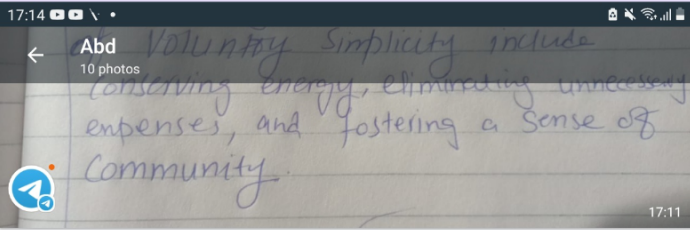 17:14
Abd
10 photos
of Voluntry Simplicity include
Conserving energy, eliminating unnecessary
expenses, and fostering a sense of
Community.
17:11